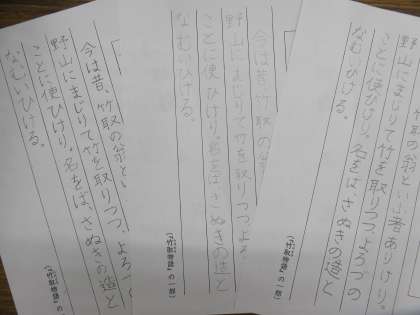 竹取の翁といふ者ありけり。
野山にまじりて竹を取りつつ、よろづの
ことに使ひけり。名をば、さぬきの造と
なむいひける。
(『竹取物語』の一部)
今は昔、竹取の翁
野山にまじりて竹を取りつつ、よろ
ことに使ひけり。名をば、さぬきの造と
なむいひける。
(『竹取物語』の一部)
今は昔、竹取の翁とい
野山にまじりて竹を取りつつ、よろづ
ことに使ひけり。名をば、さぬきの造と
なむいひける。
(『竹取物語』の